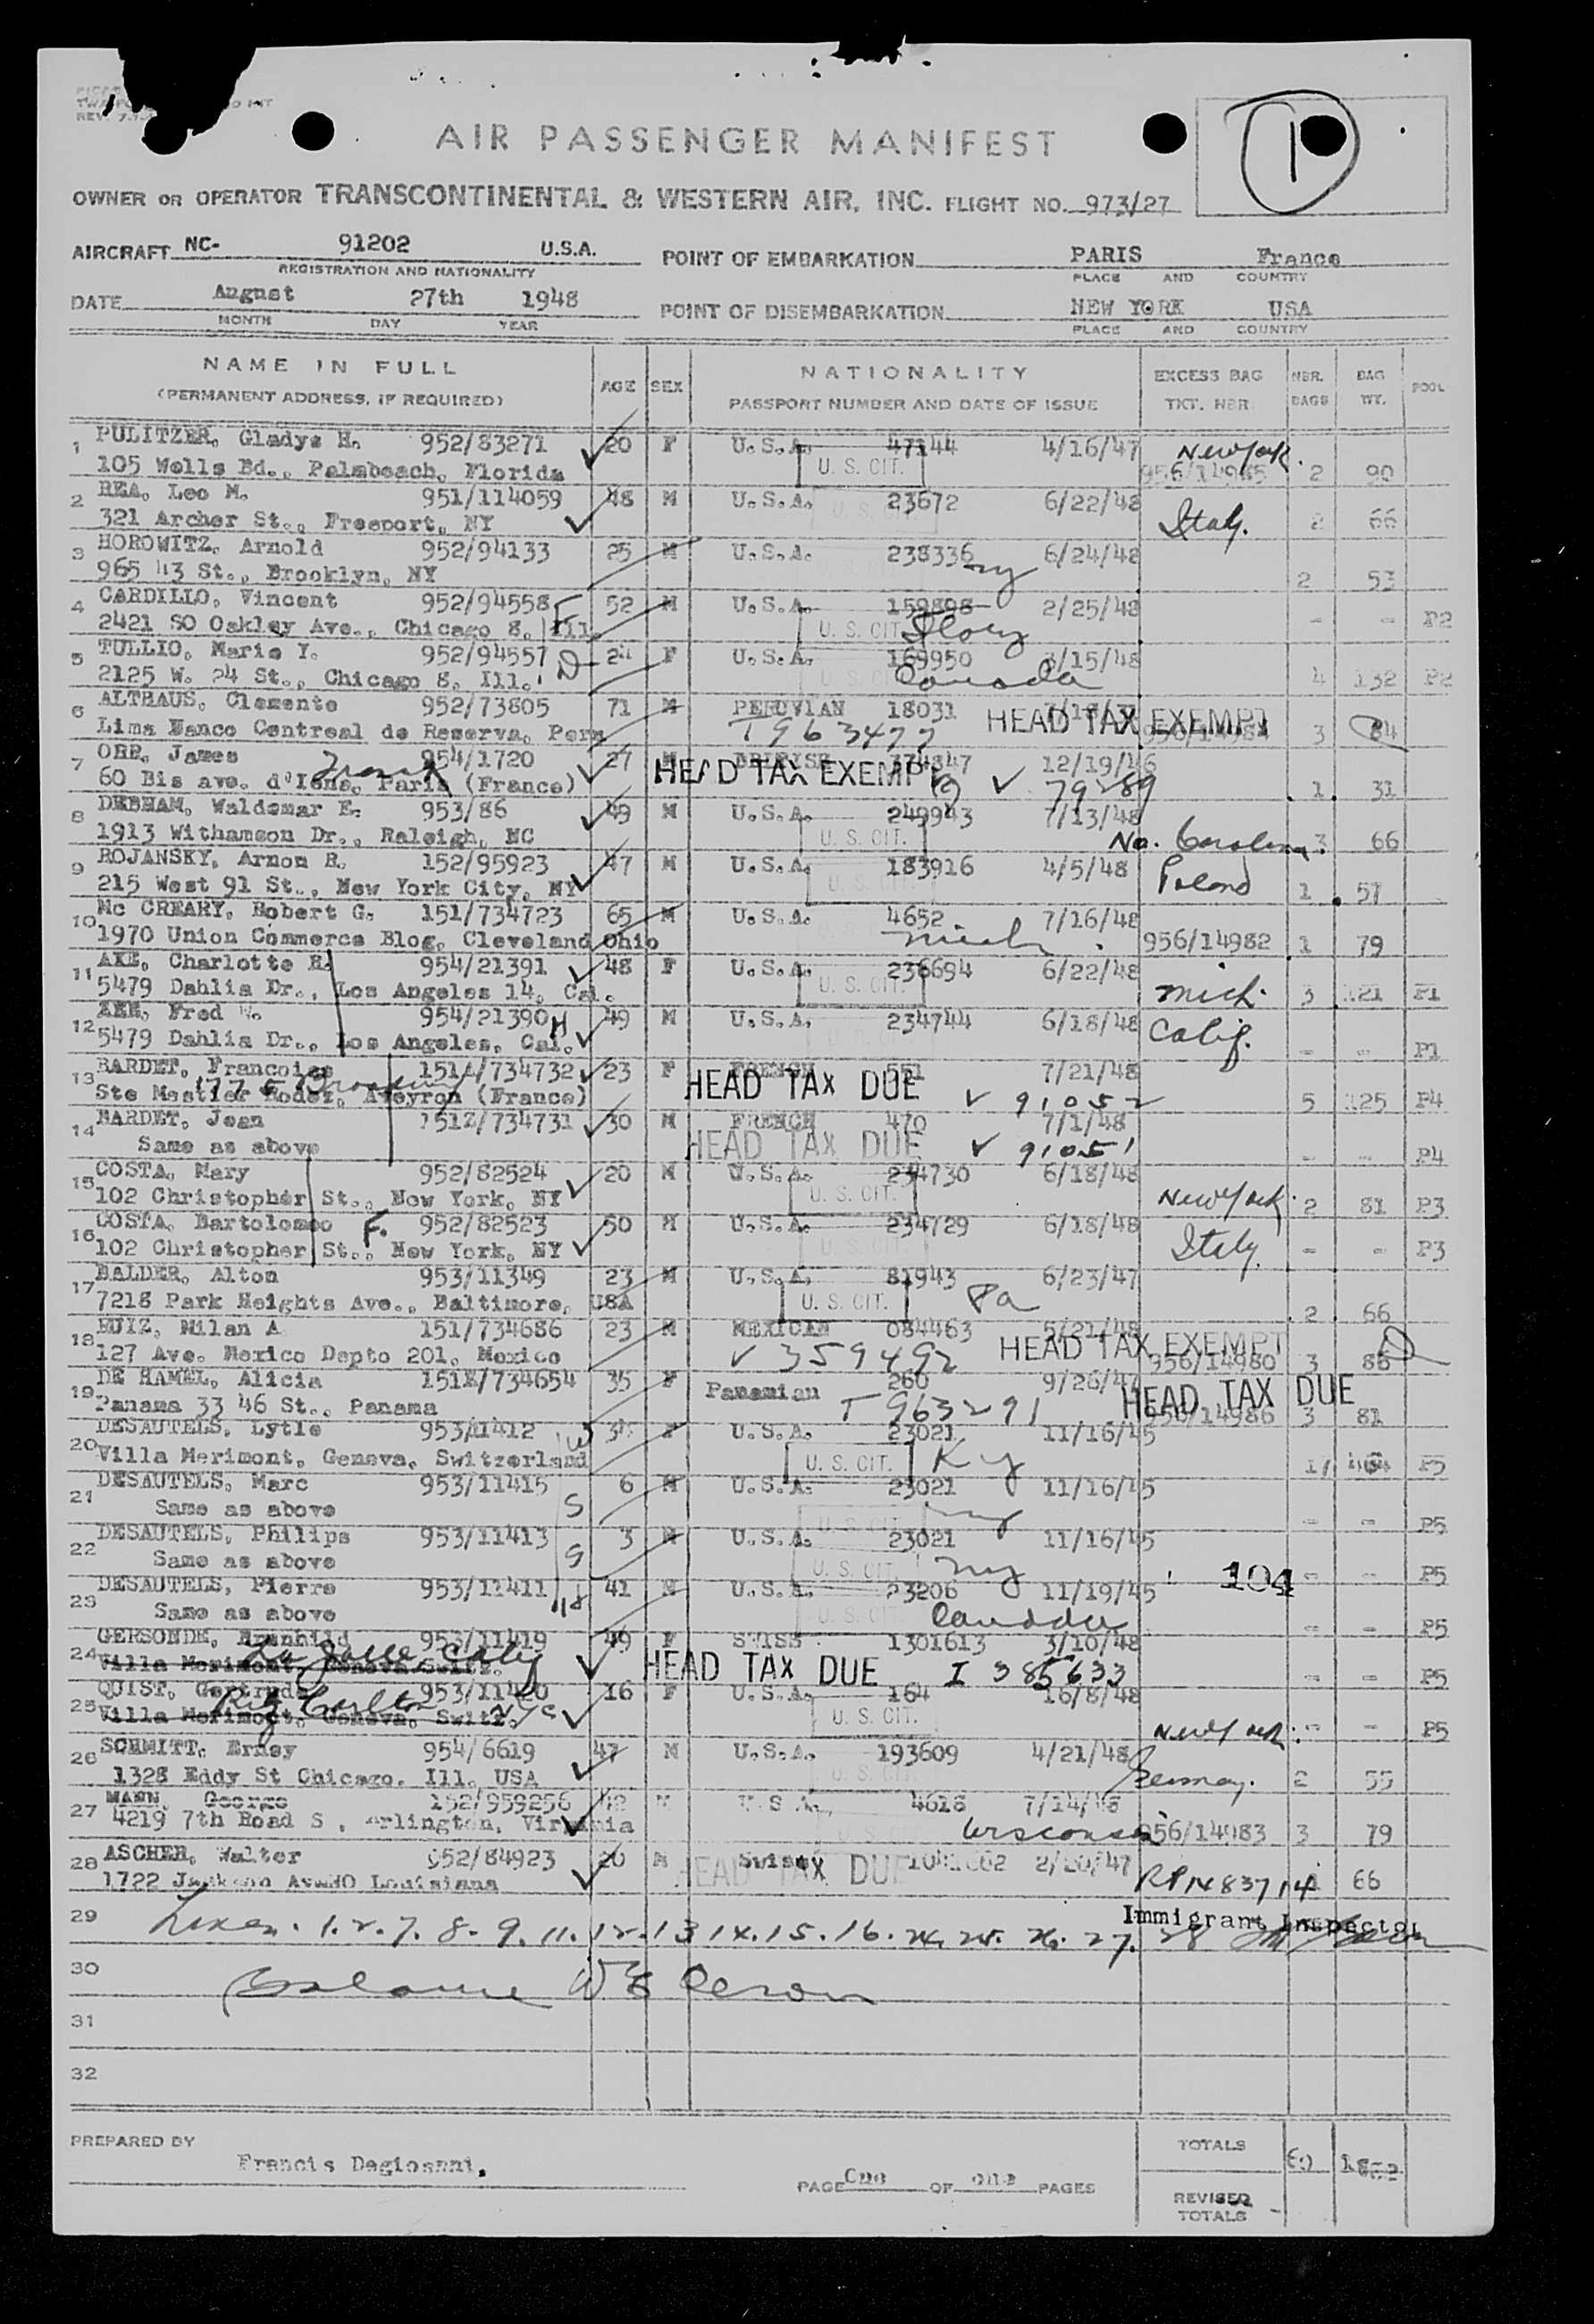 REV. 7.1
1
AIR PASSENGER MANIFEST
OWNER OR OPERATOR TRANSCONTINENTAL & WESTERN AIR, INC. FLIGHT NO. 973/27
AIRCRAFT NC- 91202 U.S.A. POINT OF EMBARKATION PARIS France
REGISTRATION AND NATIONALITY PLACE AND COUNTRY
DATE August 27th 1948 POINT OF DISEMBARKATION NEW YORK USA
MONTH DAY YEAR PLACE AND COUNTRY
NAME IN FULL AGE SEX NATIONALITY EXCESS BAG NBR. BAG POOL
(PERMANENT ADDRESS, IF REQUIRED) PASSPORT NUMBER AND DATE OF ISSUE TKT. NBR BAGS WT.
1 PULITZER, Gladys H. 952/83271 20 F U.S.A. 47144 4/16/47 New York.
105 Wells Bd., Palmbeach, Florida U. S. CIT. 956/14985 2 90
2 REA, Leo M. 951/114059 48 M U.S.A. 23672 6/22/48
321 Archer St., Freeport, NY Italy. 2 66
3 HOROWITZ, Arnold 952/94133 25 M U.S.A. 238336 6/24/48
965 43 St., Brooklyn, NY ny 2 53
4 CARDILLO, Vincent 952/94558 F 52 M U.S.A. 159898 2/25/48
2421 SO Oakley Ave., Chicago 8, Ill. U. S. CIT. Italy - - P2
5 TULLIO, Marie Y. 952/94557 D 24 F U.S.A. 169950 3/15/48
2125 W. 24 St., Chicago 8, Ill. Canada 4 132 P2
6 ALTHAUS, Clemente 952/73805 71 M PERUVIAN 18031 HEAD TAX EXEMPT
Lima Manco Centreal de Reserva, Peru T963477 956/14984 3 84
7 ORR, James 954/1720 27 M BRITISH 374847 12/19/46
60 Bis ave. d'Iena, Paris (France) HEAD TAX EXEMPT 79289 1 31
8 DEBHAM, Waldemar E. 953/86 49 M U.S.A. 249943 7/13/48
1913 Withamson Dr., Raleigh, NC U. S. CIT. No. Carolina. 3 66
9 ROJANSKY, Arnon R. 152/95923 47 M U.S.A. 183916 4/5/48
215 West 91 St., New York City, NY U. S. CIT. Poland 1 57
10 Mc CREARY, Robert G. 151/734723 65 M U.S.A. 4652 7/16/48
1970 Union Commerce Blog, Cleveland Ohio Mich. 956/14982 1 79
11 AXE, Charlotte E. 954/21391 48 F U.S.A. 236694 6/22/48
5479 Dahlia Dr., Los Angeles 14, Cal. U. S. CIT. Mich. 3 121 P1
12 AXE, Fred W. 954/21390 H 49 M U.S.A. 234744 6/18/48 Calif.
5479 Dahlia Dr., Los Angeles, Cal. - - P1
13 BARDET, Francoise 151A/734732 23 F FRENCH 551 7/21/48
1775 Broadway
Ste Mestier Rodez, Aveyron (France) HEAD TAX DUE 91052 5 125 P4
14 BARDET, Jean 151Z/734731 30 M FRENCH 470 7/1/48
Same as above HEAD TAX DUE 91051 - - P4
15 COSTA, Mary 952/82524 20 M U.S.A. 234730 6/18/48
102 Christopher St., New York, NY U. S. CIT. New York. 2 81 P3
16 COSTA, Bartolomeo F. 952/82523 50 M U.S.A. 234729 6/18/48
102 Christopher St., New York, NY Italy. - - P3
17 BALDER, Alton 953/11349 23 M U.S.A. 81943 6/23/47
7218 Park Heights Ave., Baltimore, USA U. S. CIT. Pa 2 66
18 RUIZ, Milan A 151/734686 23 M MEXICAN 084463 5/21/48
127 Ave. Mexico Depto 201, Mexico 359492 HEAD TAX EXEMPT 956/14980 3 86
19 DE HAMEL, Alicia 151Z/734654 35 F Panamian 260 9/26/47
Panama 33 46 St., Panama T 963291 HEAD TAX DUE 956/14986 3 81
20 DESAUTELS, Lytle 953/11412 W F U.S.A. 23021 11/16/45
Villa Merimont, Geneva, Switzerland U. S. CIT. Ky P5
21 DESAUTELS, Marc 953/11415 6 M U.S.A. 23021 11/16/45
Same as above S ny - - P5
22 DESAUTELS, Philips 953/11413 3 M U.S.A. 23021 11/16/45
Same as above S U. S. CIT. ny 104 - - P5
23 DESAUTELS, Pierre 953/11411 41 M U.S.A. 23206 11/19/45
Same as above Canada - - P5
24 GERSONDE, 953/11419 49 F SWISS 1301613 3/10/48
La Jolla, Calif
Villa Merimont, Geneva Switz. HEAD TAX DUE I 385633 - - P5
25 QUIST, Gertrude 953/11420 16 F U.S.A. 164 16/8/48
Ritz Carlton nyc
Villa Merimont, Geneva, Switz. U. S. CIT. New York. - - P5
26 SCHMITT, Erney 954/6619 47 M U.S.A. 193609 4/21/48
1328 Eddy St Chicago, Ill. USA Germany. 2 55
27 MANN, George 152/959256 42 M U.S.A. 4618 7/14/48
4219 7th Road S, Arlington, Virginia Wisconsin 956/14983 3 79
28 ASCHER, Walter 952/84923 20 M Swiss 2/20/47
1722 Jackson Av NO Louisiana HEAD TAX DUE 66
Immigrant Inspector
29 Lines. 1. 2. 7. 8. 9. 11. 12. 13 14. 15. 16. 24. 25. 26. 27. 28
30 Balance
31
32
PREPARED BY Francis Degiosnni. TOTALS
PAGE One OF one PAGES
REVISED TOTALS -